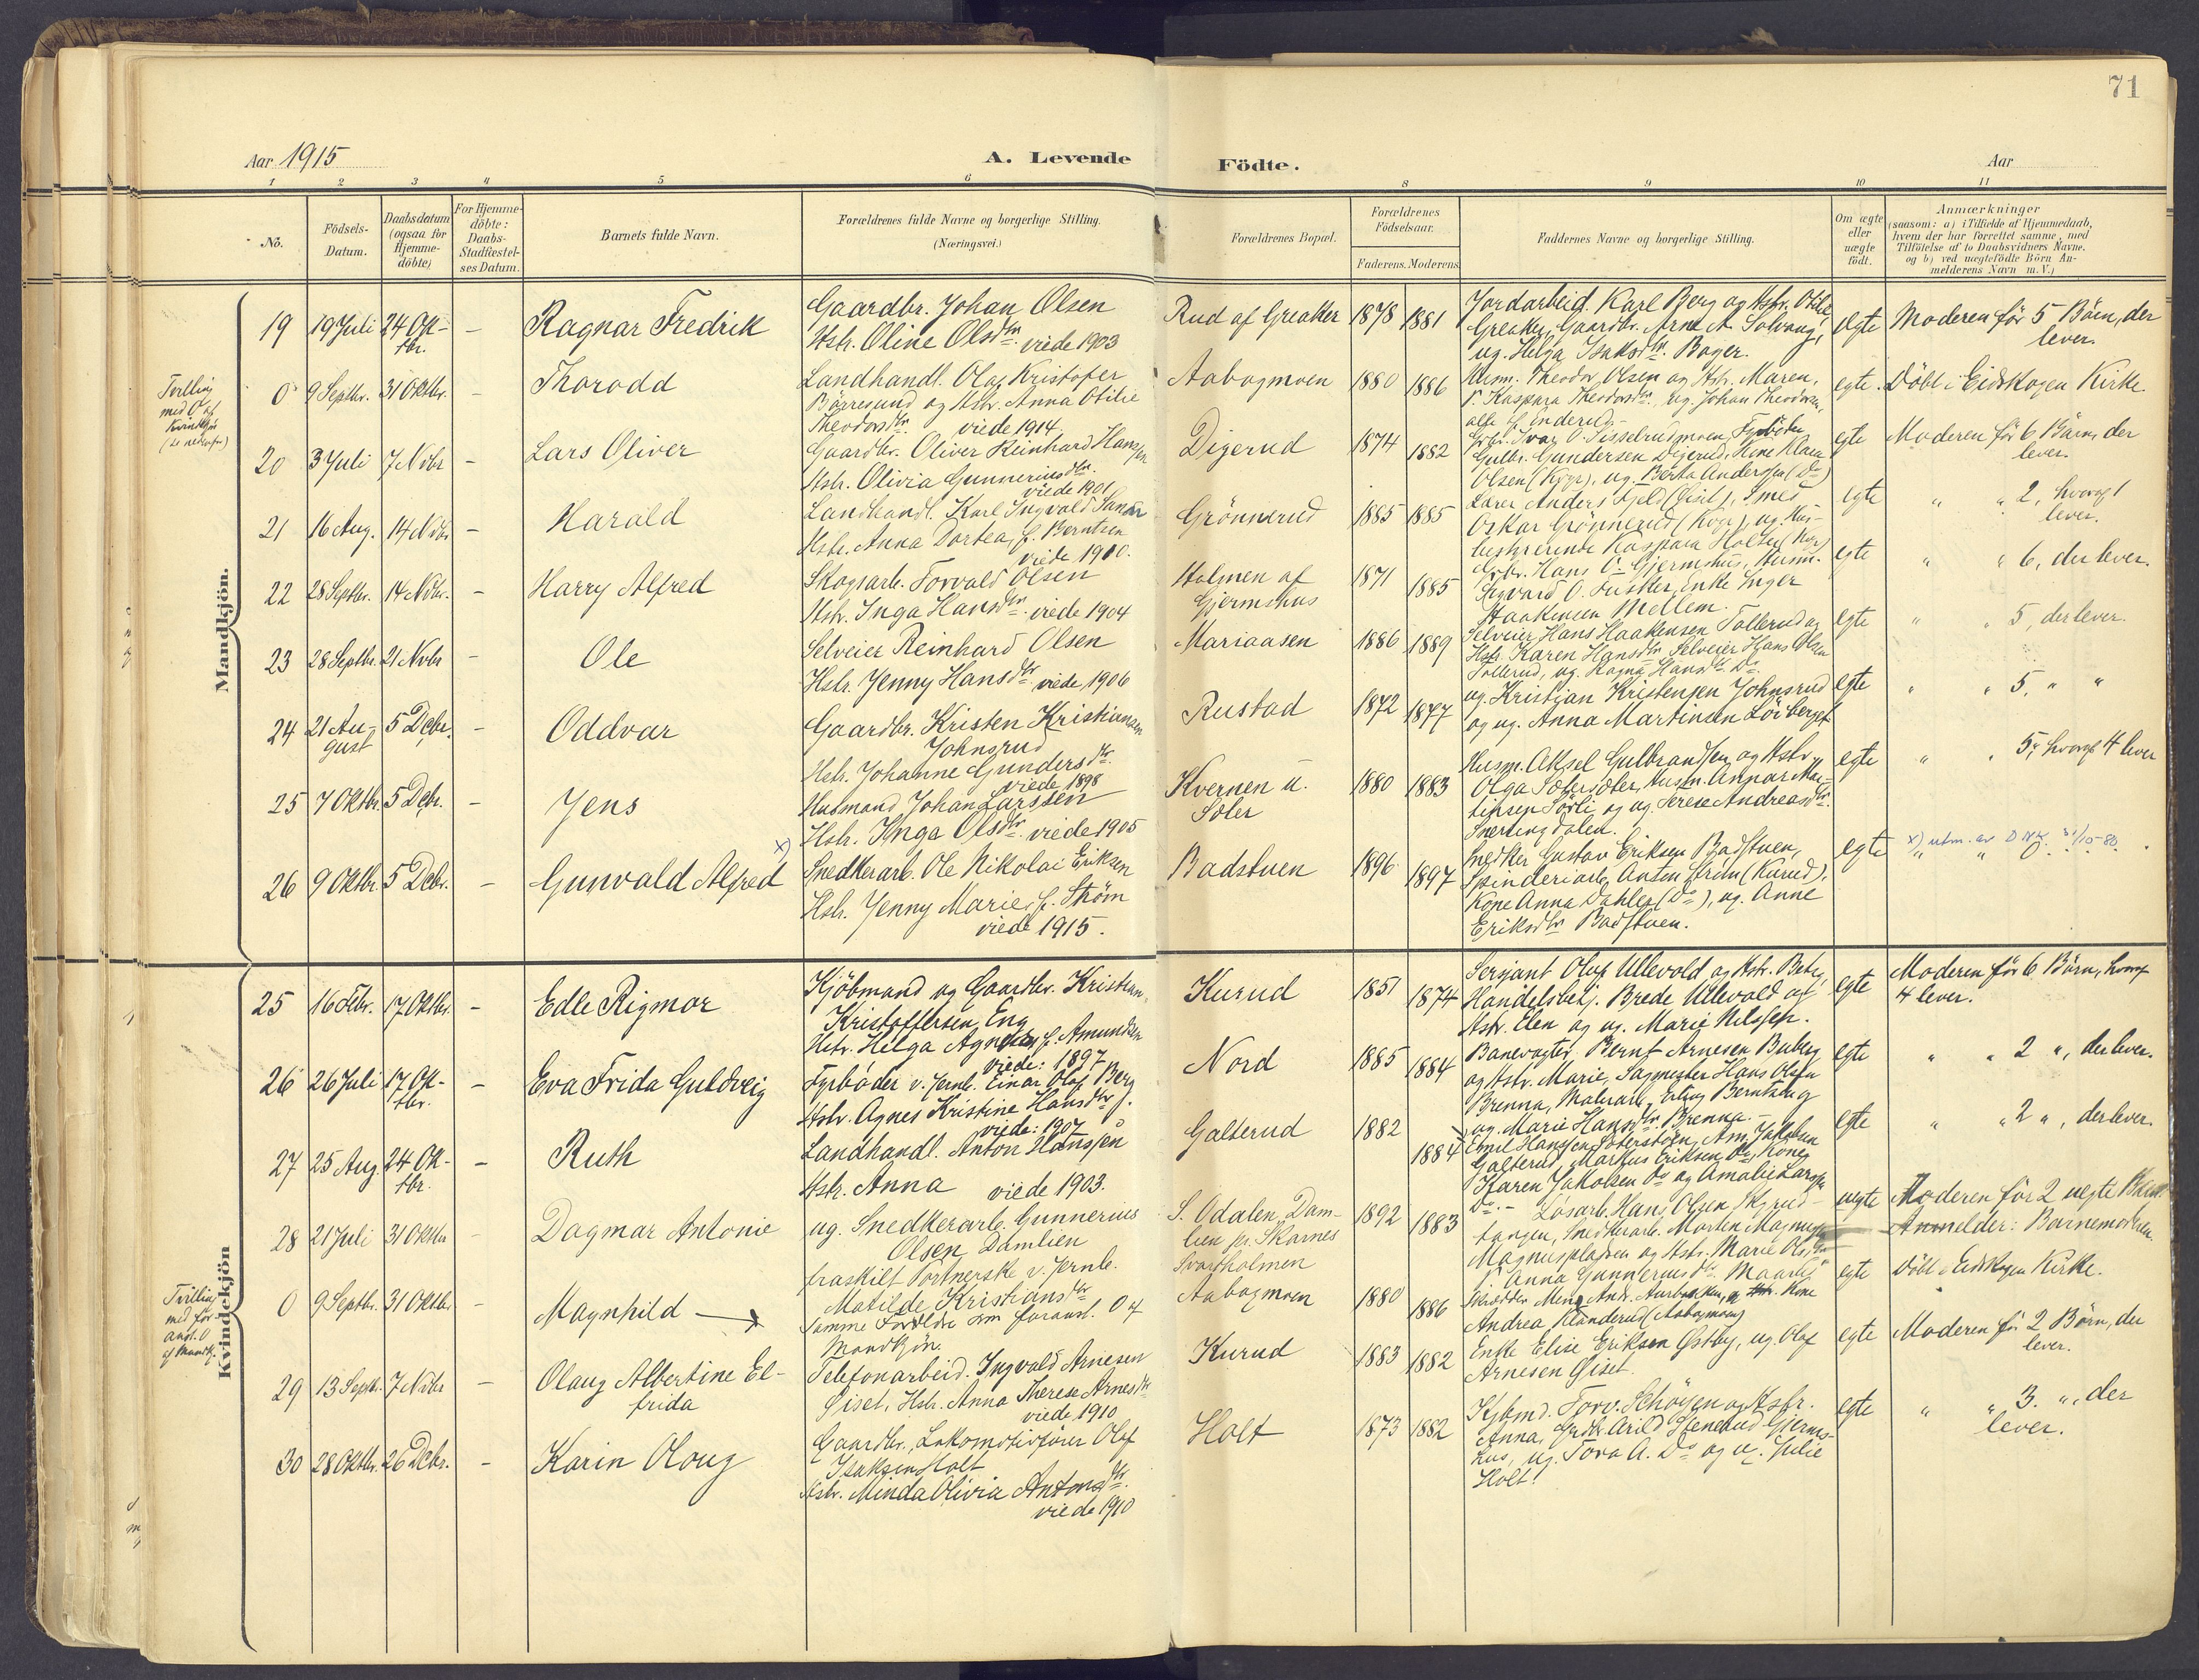 71
Aar 1915
A. Levende Födte.
Aar
1 2 3 4 5 6 8 9 10 11
No.
Födsels-Datum.
Daabsdatum (ogsaa for Hjemme-döbte)
For Hjemme-döbte: Daabs-Stadfæstel-ses Datum.
Barnets fulde Navn.
Forældrenes fulde Navne og borgerlige Stilling.
(Næringsvei.)
Forældrenes Bopæl.
Forældrenes Födselsaar.
Faderens. Moderens
Faddernes Navne og borgerlige Stilling.
Om ægte eller uægte födt.
Anmærkninger
(saasom: a) i Tilfælde af Hjemmedaab,
hvem der har forrettet samme, med
Tilföielse af to Daabsvidners Navne.
og b) ved uægtefödte Börn An-
melderens Navn m.V.)
Mandkjön.
19 19 Juli 24 Ok-tbr. – Ragnar Fredrik
Gaardbr. Johan Olsen
Hstr. Oline Olsdtr. viede 1903
Rud af Greaker 1878 1881
Jordarbeid. Karl Berg og Hstr. Otilie
Greaker, Gaardbr. Arne A. Solvang,
ug. Helga Isaksdtr. Bager.
egte
Moderen för 5 Börn, der
lever.
Tvilling
med O af
Kvindekjön
(se nedenfor)
0 9 Septbr. 31 Oktbr. – Thorodd
Landhandl. Olaf Kristofer
Börresund og Hstr. Anna Otilie
Theodorsdtr. viede 1914.
Aabogmoen 1880 1886
Husm. Theodor Olsen og Hstr. Maren,
P. Kaspara Theodorsdtr., ug. Johan Theodorsen,
alle f. Enderud.
egte.
Döbt i Eidskogen Kirke.
20 3 Juli 7 Nvbr – Lars Oliver
Gaardbr. Oliver Reinhard Hanssen
Hstr. Olivia Gunneriusdtr.
viede 1901
Digerud 1874 1882
Grbr. Ivar O. Sisselrudmoen, Fyrböter
Gulbr. Gundersen Digerud, Kone Klara
Olsen (Kggr), ug. Berta Andersen (Do)
egte
Moderen för 6 Börn, der
lever.
21 16 Aug. 14 Nvbr – Harald
Landhandl. Karl Ingvald Sander
Hstr. Anna Dortea, f. Berntsen
viede 1910.
Grönnerud 1885 1885
Lærer Anders Fjeld (Giset), Smed
Oskar Grönnerud (Kggr), ug. Hus-
bestyrerinde Kaspara Holsen (Kggr)
egte
" " 2, hvoraf 1
lever.
22 28 Septbr. 14 Nvbr. – Harry Alfred
Skogsarb. Torvald Olsen
Hstr. Inga Hansdtr. viede 1904
Holmen af
Gjermshus
1871 1885
Grbr. Hans O. Gjermshus, Husm.
Sigvard O. Fusker, Enke Inger
Haakensen Mellem.
egte
" " 6, der lever.
23 28 Septbr. 21 Nvbr – Ole
Selveier Reinhard Olsen
Hstr. Jenny Hansdtr. viede 1906
Mariaasen 1886 1889
Selveier Hans Haakensen Tollerud og
Hstr. Karen Hansdtr. Selveier Hans Olsen
Tollerud, ug. Ragna Hansdtr. Do
egte
" " 5, der lever.
24 21 Au-gust 5 Dcbr. – Oddvar
Gaardbr. Kristen Kristiansen
Johnsrud
Hstr. Johanne Gundersdtr.
viede 1898
Rustad 1872 1877
ug. Kristian Kristensen Johnsrud
og ug. Anna Martinsen Löiberget
egte
" " 5, " "
25 7 Oktbr. 5 Dcbr. – Jens
Husmand Johan Larssen
Hstr. Inga Olsdtr. viede 1905
Kvernen u.
Sæter
1880 1883
Husm. Aksel Gulbrandsen og Hstr.
Olga Sætersæter, Husm. Annar Mar-
tinsen Sörli og ug. Serese Andreasdtr.
Snertingdalen.
egte
" " 5, hvoraf 4 lever
x)
26 9 Oktbr. 5 Dcbr. – Gunvald Alfred
Snedkerarb. Ole Nikolai Eriksen
Hstr. Jenny Marie, f. Ström
viede 1915.
Badstuen 1896 1897
Snedker Gustav Eriksen Badstuen,
Spinderiarb. Anton Ström (Kurud),
Kone Anna Dahlen (Do), ug. Anne
Eriksdtr. Badstuen.
egte
x) utm. av DNK. 31/10-80.
" " 0. " " .
Kvindekjön
25 16 Febr. 17 Oktbr. – Edle Rigmor
Kjöbmand og Gaardbr. Kristian
Kristoffersen Eng
Hstr. Helga Agnete, f. Amundsen
viede: 1897
Kurud 1851 1874
Sersjant Oluf Ullevold og Hstr. Betsy,
Handelsbetj. Brede Ullevold og
Hstr. Elen og ug. Marie Nilssen.
egte
Moderen för 6 Börn, hvoraf
4 lever.
26 26 Juli 17 Ok-tbr. – Eva Frida Guldveig
Fyrböder v. Jernb. Einar Olaf Berg
Hstr. Agnes Kristine Hansdtr.
viede: 1907
Nord 1885 1884
Banevogter Bernt Arnesen Buberg
og Hstr. Marie, Sagmester Hans Olsen
Brenna, Malerarb. Erling Berntsen og
ug. Marie Hansdtr. Brenna. –
egte
" " 2 ", der lever.
27 25 Aug 24 Ok-tbr. – Ruth
Landhandl. Anton Hanssen
Hstr. Anna viede 1903.
Galterud 1882 1884
Emil Hanssen Sæterstöen, Am. Jakobsen
Galterud, Markus Eriksen Do, Kone
Karen Jakobsen Do og Amalie Larssen
Do. –
egte
" " 2 ", der lever.
28 21 Juli 31 Oktbr – Dagmar Antonie
ug. Snedkerarb. Gunnerius
Olsen Damlien
fraskilt Portnerske v. Jernb.
Matilde Kristiansdtr
S. Odalen Dam-
lien pr. Skarnes
Svartholmen
1892 1883
Lösarb. Hans Olsen Skjrud-
tangen, Snedkerarb. Morten Magnussen
Magnusplassen og Hstr. Marie Olsdtr
P. Anna Gunneriusdtr. Maarud
uegte
Moderen för 2 uegte Börn
Anmelder: Barnemoderen.
Tvilling
med for-
anst. O
af Mandkj.
0 9 Septbr. 31 Oktbr. – Magnhild →
samme Forældre som foranst. O af
Mandkjön.
Aabogmoen 1880 1886
Andrea Klanderud (Aabogmoen)
egte
Döbt i Eidskogen Kirke.
29 13 Septbr. 7 Nvbr – Olaug Albertine El-
frida
Telefonarbeid. Ingvald Arnesen
Giset, Hstr. Anna Therese Arnesdtr
viede 1910
Kurud 1883 1882
Enke Elise Eriksen Østby, ug. Olaf
Arnesen Giset.
egte
Moderen för 2 Börn, der
lever.
30 28 Oktbr. 26 Dcbr. – Karin Oloug
Gaardbr., Lokomotivförer Olaf
Isaksen Holt
Hstr. Minda Olivia Antonsdtr.
viede 1910
Holt 1873 1882
Kjbmd. Torv. Schöyen og Hstr.
Anna, Grdbr. Arild Stenerud Gjerms-
hus, ug. Tora A. Do og ug. Julie
Holt.
egte
" " 3. ", der
lever.